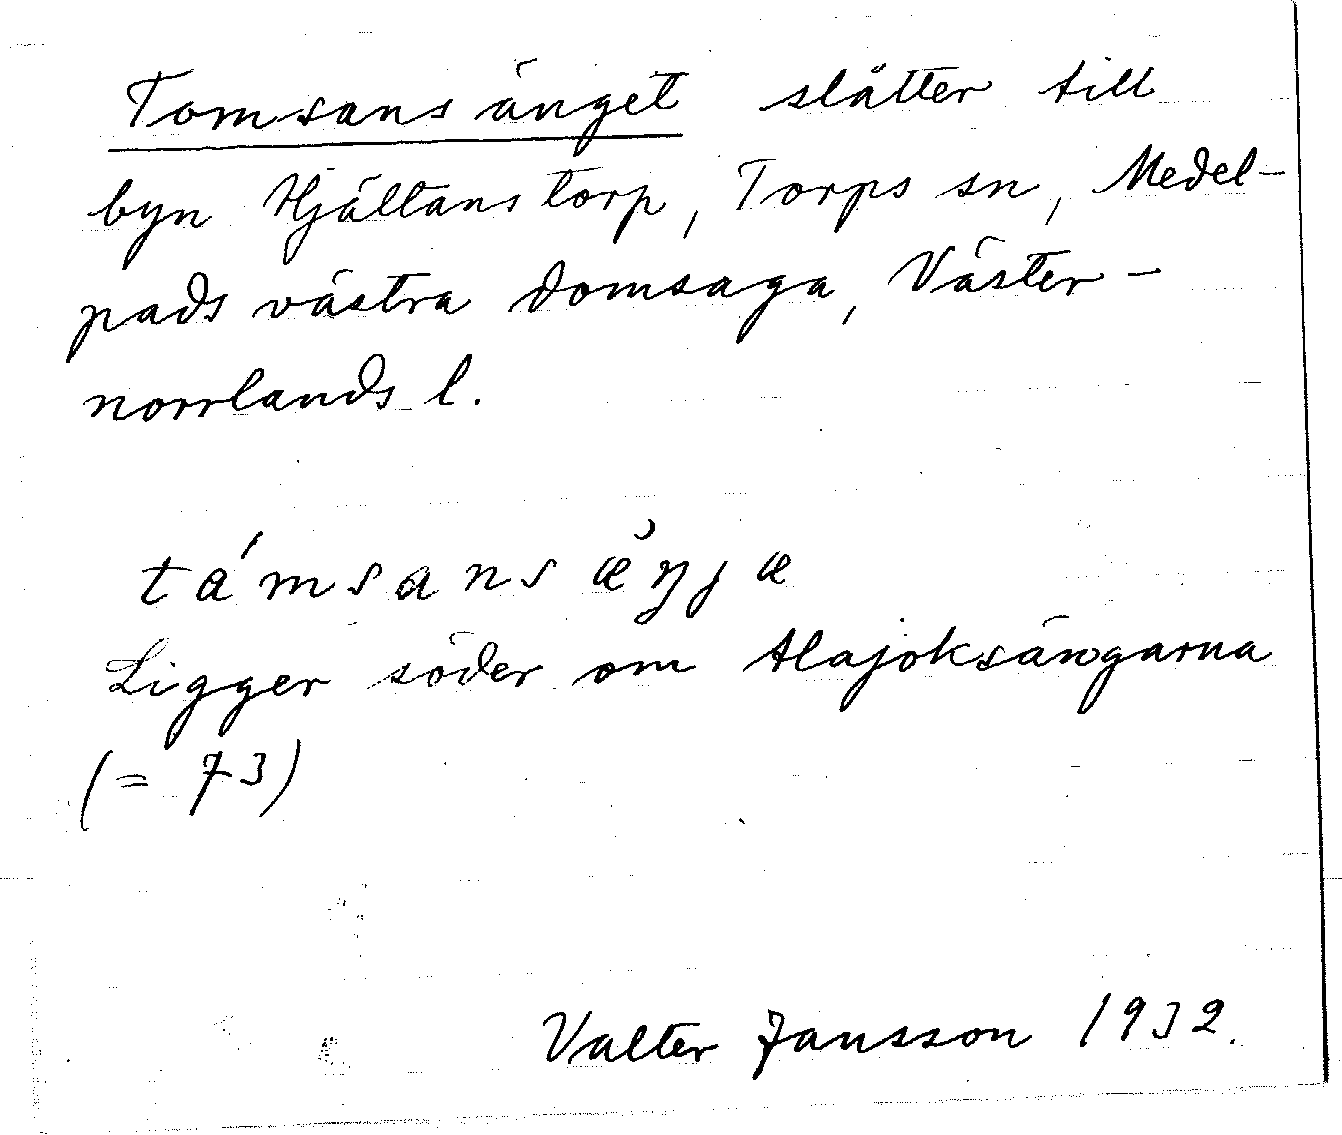 Tomsansänget slåtter till
byn Hjältanstorp, Torps sn, Medel-
pads västra domsaga, Väster-
norrlands l.
támsansæ̀ŋjæ
Ligger söder om Alajoksängarna
(= 73)
Valter Jansson 1932.